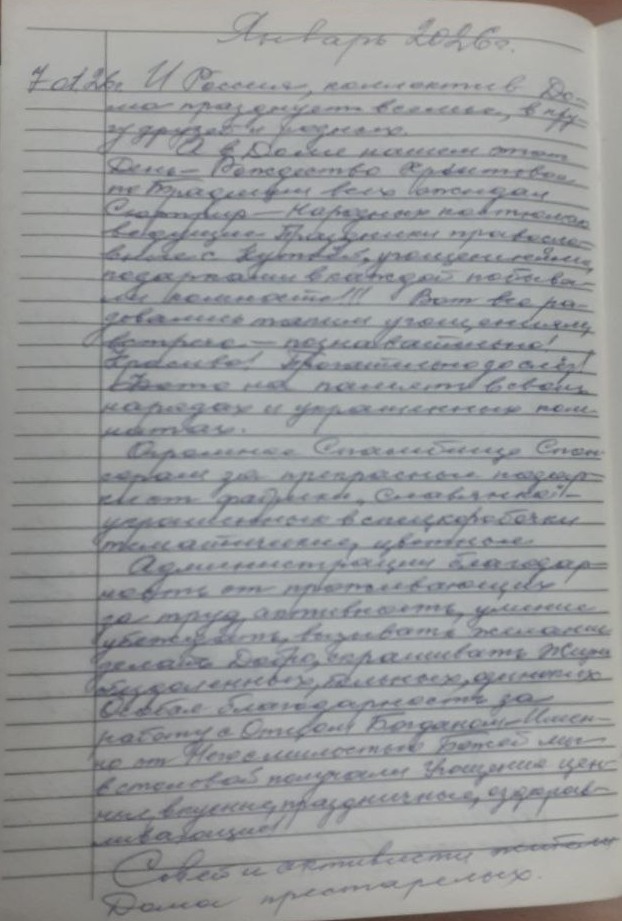 Январь 2026г.
7.01.26г И Россия, коллектив До-
ма празднует веселье, в кру-
гу друзей и родных.
А в Доме нашем этот
День — Рождество Христовое
по традиции всех ожидал
Сюрприз — Народных костюмах
ведущие Праздники правосла-
вные с Кутьёй, угощениями,
подарками в каждой побыва-
ли комнате!!! Вот все ра-
довались таким угощениям
встреча — познавательно!
Красиво! Трогательно до слёз!
Фото на память в своих
нарядах и украшенных ком-
натах.
Огромное Спасибище Спон-
сорам за прекрасные подар-
ки от фабрики "Славянка" -
украшенных в спецкоробочки
тематические, цветные
Администрации благодар-
ность от проживающих
за труд, активность, умение
убеждать, вызывать желание
делать Добро, скрашивать Жизнь
обездоленных, больных, одиноких
Особая благодарность за
работу с Отцом Богданом. Имен-
но от Него с милостью Божей мы
в столовой получали Угощение цен-
ные, вкусные, праздничные, оздорав-
ливающие!
Совет и активисты жители
Дома престарелых.